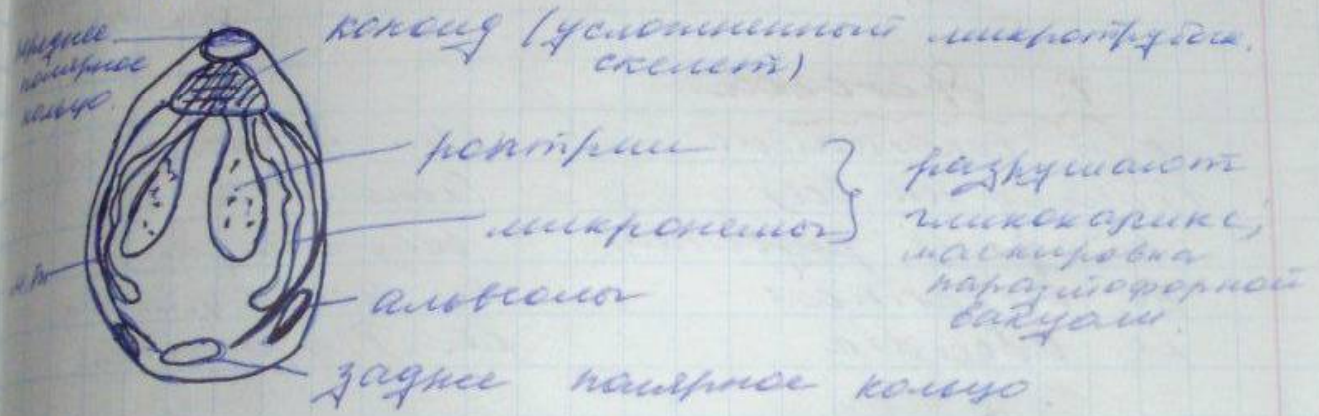 переднее
полярное
кольцо.
коноид (усложненный микротрубоч.
скелет)
роптрии
микронемы
разрушают
гликокаликс,
маскировка
паразитофорной
вакуоли
альвеолы
заднее полярное кольцо